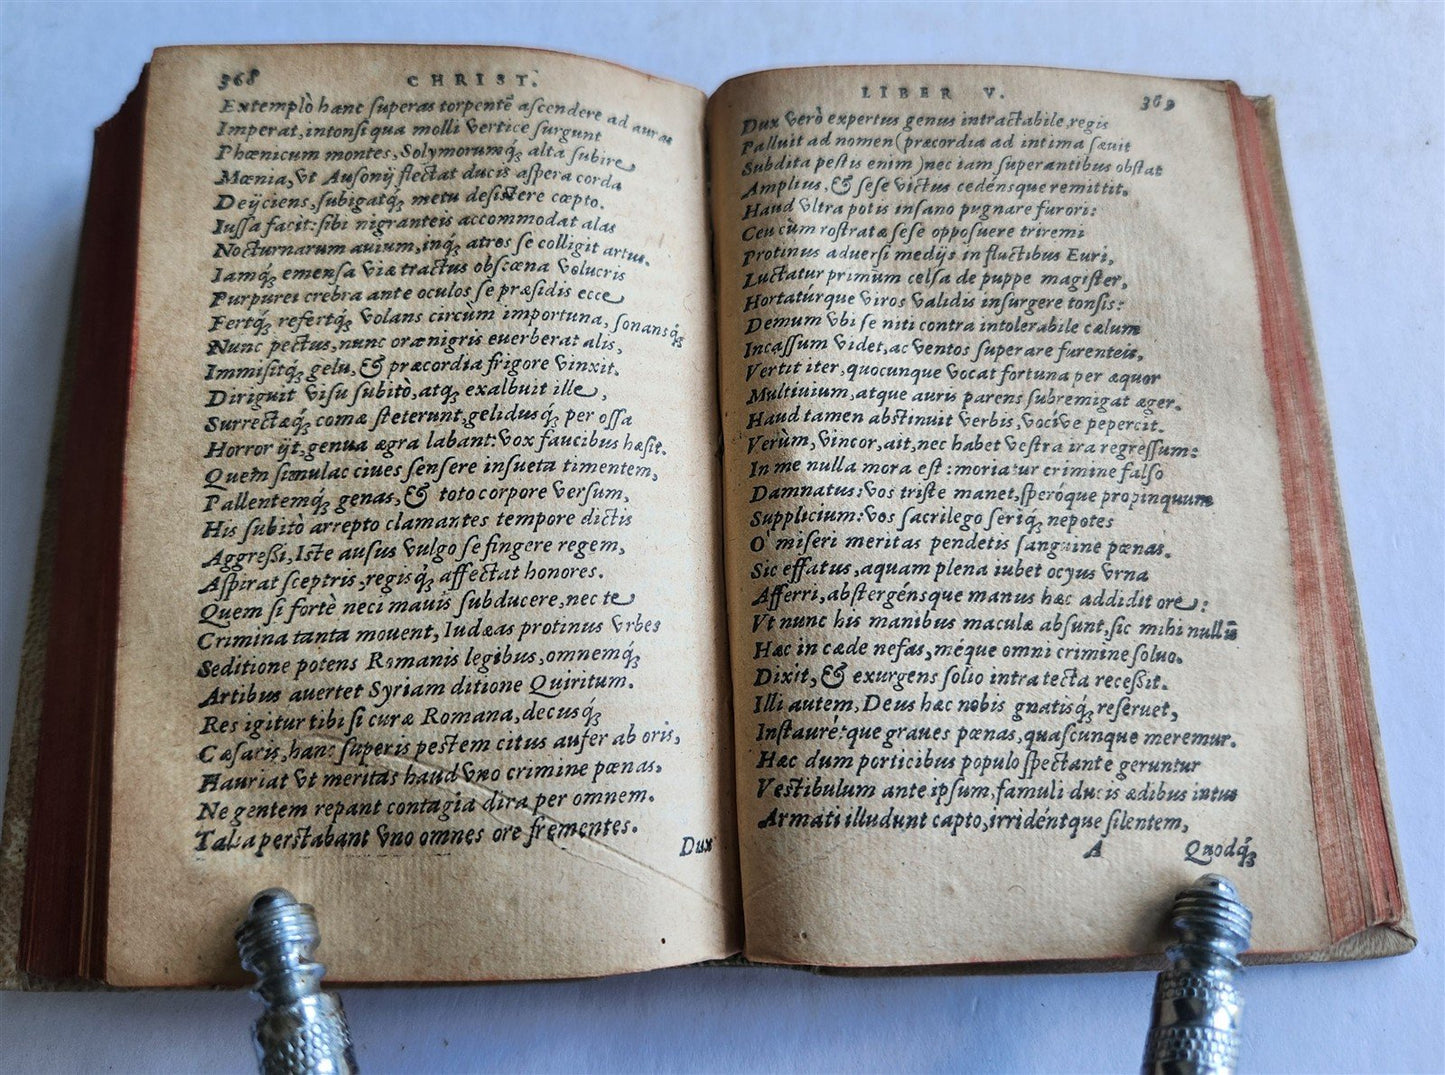 368 CHRIST.
Extemplò hanc superas torpentē ascendere ad auras
Imperat, intonsi qua molli vertice surgunt
Phœnicum montes, Solymorumq; alta subire
Mœnia, vt Ausonij flectat ducis aspera corda
Deijciens, subigatq; metu desistere cœpto.
Iussa facit: sibi nigranteis accommodat alas
Nocturnarum auium, inq; atros se colligit artus.
Iamq; emensa viæ tractus obscœna volucris
Purpurei crebra ante oculos se præsidis ecce
Fertq; refertq; volans circùm importuna, sonansq;
Nunc pectus, nunc ora nigris euerberat alis,
Immisitq; gelu, & præcordia frigore vinxit.
Diriguit visu subitò, atq; exalbuit ille,
Surrectæq; comæ steterunt, gelidusq; per ossa
Horror ijt, genua ægra labant: vox faucibus hæsit.
Quem simulac ciues sensere insueta timentem,
Pallentemq; genas, & toto corpore versum,
His subitò arrepto clamantes tempore dictis
Aggreßi, Iste ausus vulgo se fingere regem,
Aspirat sceptris, regisq; affectat honores.
Quem si fortè neci mauis subducere, nec te
Crimina tanta mouent, Iudæas protinus vrbes
Seditione potens Romanis legibus, omnemq;
Artibus auertet Syriam ditione Quiritum.
Res igitur tibi si curæ Romana, decusq;
Cæsaris, hanc superis pestem citus aufer ab oris,
Hauriat vt meritas haud vno crimine pœnas,
Ne gentem repant contagia dira per omnem.
Talia perstabant vno omnes ore frementes.
Dux
LIBER V. 369
Dux verò expertus genus intractabile, regis
Palluit ad nomen (præcordia ad intima sæuit
Subdita pestis enim) nec iam superantibus obstat
Amplius, & sese victus cedénsque remittit.
Haud vltra potis insano pugnare furori:
Ceu cùm rostratæ sese opposuere triremi
Protinus aduersi medijs in fluctibus Euri,
Luctatur primùm celsa de puppe magister,
Hortatúrque viros validis insurgere tonsis:
Demum vbi se niti contra intolerabile cælum
Incassum videt, ac ventos superare furenteis,
Vertit iter, quocunque vocat fortuna per æquor
Multiuium, atque auris parens subremigat æger.
Haud tamen abstinuit verbis, vocíve pepercit.
Verùm, vincor, ait, nec habet vestra ira regressum:
In me nulla mora est: moriatur crimine falso
Damnatus: vos triste manet, speróque propinquum
Supplicium: vos sacrilego seriq; nepotes
O' miseri meritas pendetis sanguine pœnas.
Sic effatus, aquam plena iubet ocyus vrna
Afferri, abstergénsque manus hæc addidit ore:
Vt nunc his manibus maculæ absunt, sic mihi nullū
Hac in cæde nefas, méque omni crimine soluo.
Dixit, & exurgens solio intra tecta receßit.
Illi autem, Deus hæc nobis gnatisq; reseruet,
Instauré: que graues pœnas, quascunque meremur.
Hæc dum porticibus populo spectante geruntur
Vestibulum ante ipsum, famuli ducis ædibus intus
Armati illudunt capto, irridéntque silentem,
A Quodq;